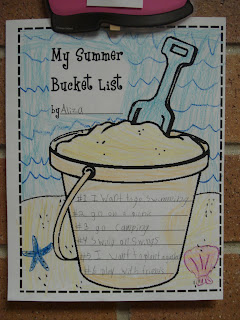 My Summer
Bucket List
by Alina
#1 I want to go swimming
#2 go on a
#3 go camping
#4 Swing on Swings
#5 I want to
#6 play with friends